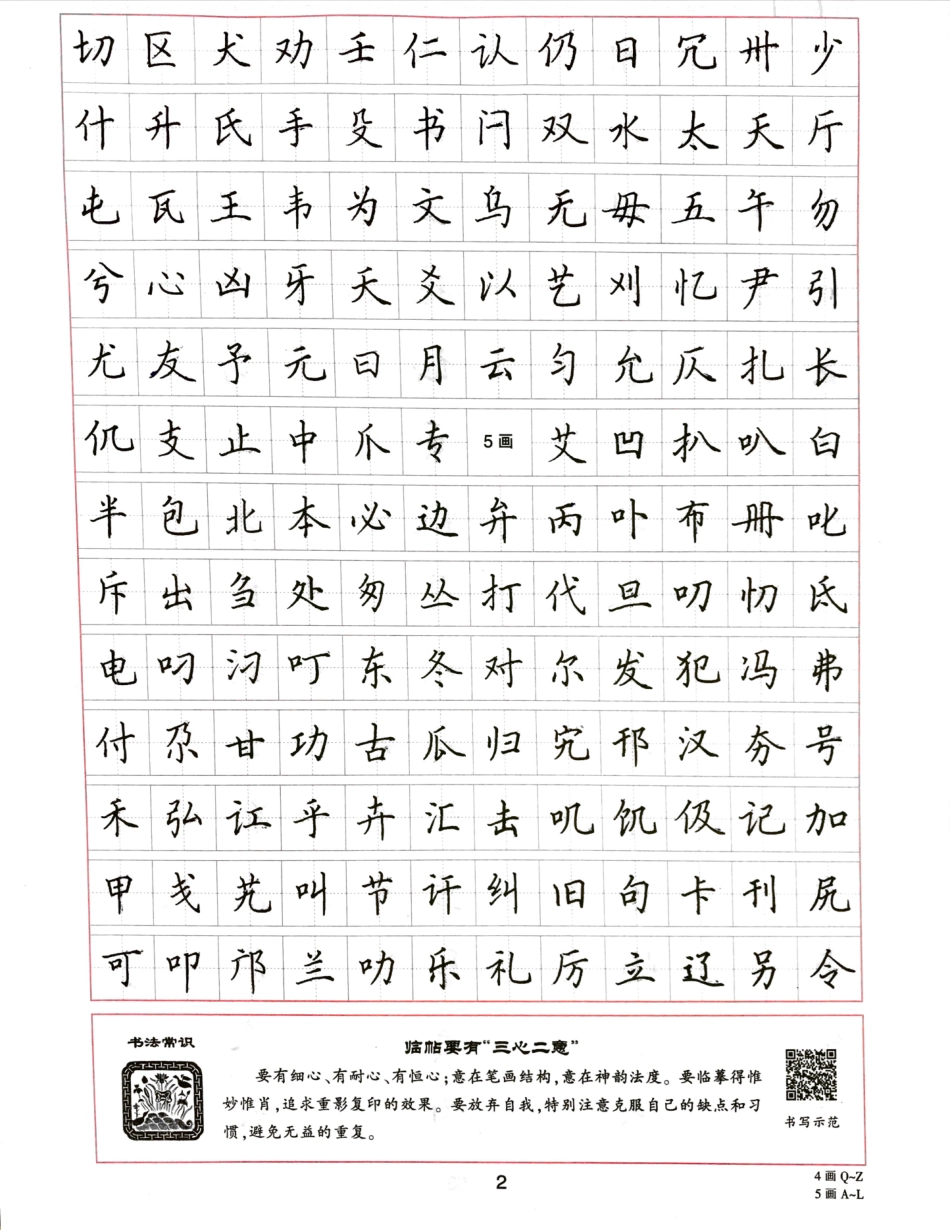 切区犬劝壬仁认仍日冗卅少
什升氏手殳书闩双水太天厅
屯瓦王韦为文乌无毋五午勿
兮心凶牙夭爻以艺刈忆尹引
尤友予元曰月云匀允仄扎长
仉支止中爪专5画艾凹扒叭白
半包北本必边弁丙卟布册叱
斥出刍处匆丛打代旦叨忉氐
电叼汈叮东冬对尔发犯冯弗
付尕甘功古瓜归宄邗汉夯号
禾弘讧乎卉汇击叽饥伋记加
甲戋艽叫节讦纠旧句卡刊尻
可叩邝兰叻乐礼厉立辽另令
书法常识
临帖要有“三心二意”
要有细心、有耐心、有恒心;意在笔画结构,意在神韵法度。要临摹得惟
妙惟肖,追求重影复印的效果。要放弃自我,特别注意克服自己的缺点和习
惯,避免无益的重复。
书写示范
2
4画Q~Z
5画A~L